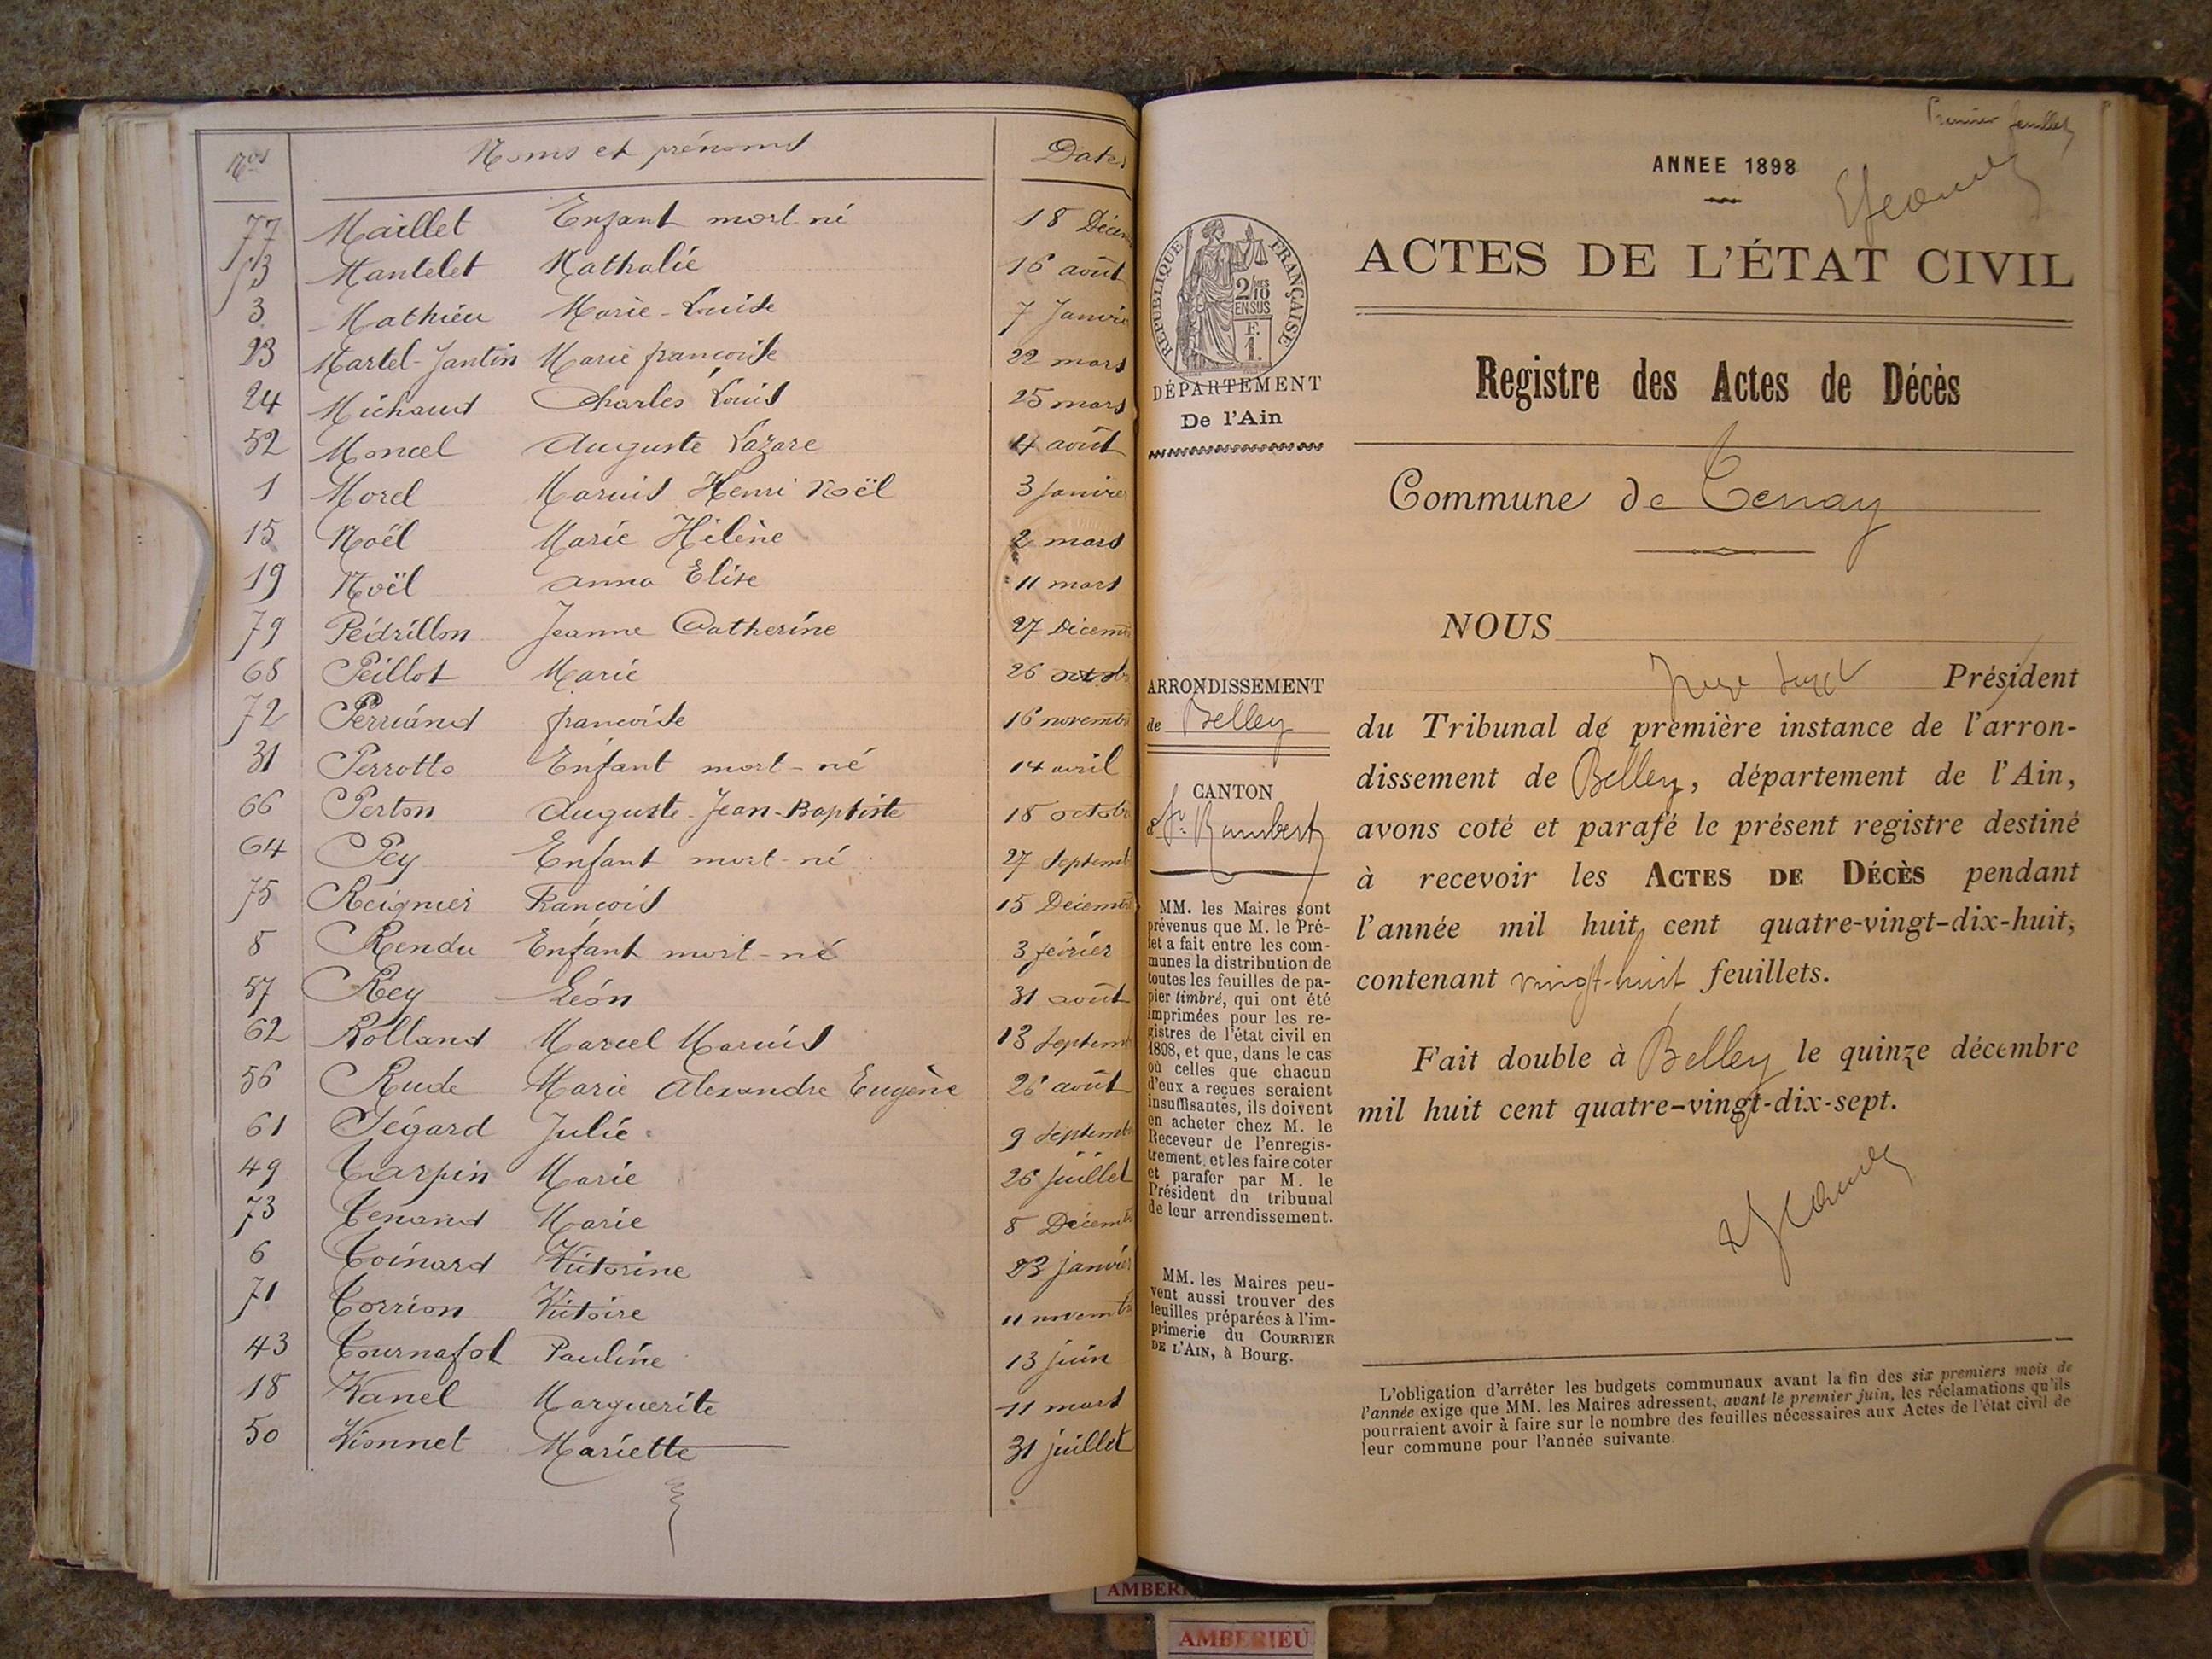 Nos Noms et prénoms Dates
77 Maillet Enfant mort-né 18 Décem
53 Mantelet Nathalie 16 août
3 Mathieu Marie-Louise 7 Janvie
23 Martel-Jantin Marie françoise 22 mars
24 Michaud Charles Louis 25 mars
52 Moncel Auguste Lazare 4 août
1 Morel Marius Henri Noël 3 Janvier
15 Noël Marie Hélène 2 mars
19 Noël Anna Elise 11 mars
79 Pédrillon Jeanne Catherine 27 Décemb
68 Peillot Marie 26 octob
72 Perruand françoise 16 novemb
31 Perrotto Enfant mort-né 14 avril
66 Perton Auguste-Jean-Baptiste 18 octob
64 Pey Enfant mort-né 27 Septemb
75 Reignier François 15 Décemb
8 Rendu Enfant mort-né 3 février
57 Rey Léon 31 août
62 Rolland Marcel Marius 13 Septemb
56 Rude Marie Alexandre Eugène 26 août
61 Ségard Julie 9 Septemb
49 Tarpin Marie 26 Juillet
73 Tenand Marie 8 Décemb
6 Toinard Victorine 23 janvier
71 Torrion Victoire 11 novemb
43 Tournafol Pauline 13 juin
18 Vanel Marguerite 11 mars
50 Vionnet Mariette 31 juillet
Premier feuillet
ANNEE 1898
ACTES DE L'ÉTAT CIVIL
REPUBLIQUE FRANÇAISE
2/10 MES
EN SUS
F.
1.
DÉPARTEMENT
De l'Ain
Registre des Actes de Décès
Commune de Tenay
NOUS
Juge Président
du Tribunal de première instance de l'arron-
dissement de Belley, département de l'Ain,
avons coté et parafé le présent registre destiné
à recevoir les ACTES DE DÉCÈS pendant
l'année mil huit cent quatre-vingt-dix-huit,
contenant vingt-huit feuillets.
Fait double à Belley le quinze décembre
mil huit cent quatre-vingt-dix-sept.
ARRONDISSEMENT
de Belley
CANTON
de St Rambert
MM. les Maires sont
prévenus que M. le Pré-
fet a fait entre les com-
munes la distribution de
toutes les feuilles de pa-
pier timbré, qui ont été
imprimées pour les re-
gistres de l'état civil en
1898, et que, dans le cas
où celles que chacun
d'eux a reçues seraient
insuffisantes, ils doivent
en acheter chez M. le
Receveur de l'enregis-
trement, et les faire coter
et parafer par M. le
Président du tribunal
de leur arrondissement.
MM. les Maires peu-
vent aussi trouver des
feuilles préparées à l'im-
primerie du COURRIER
DE L'AIN, à Bourg.
L'obligation d'arrêter les budgets communaux avant la fin des six premiers mois de
l'année exige que MM. les Maires adressent, avant le premier juin, les réclamations qu'ils
pourraient avoir à faire sur le nombre des feuilles nécessaires aux Actes de l'état civil de
leur commune pour l'année suivante.
AMBERI
AMBERIEU